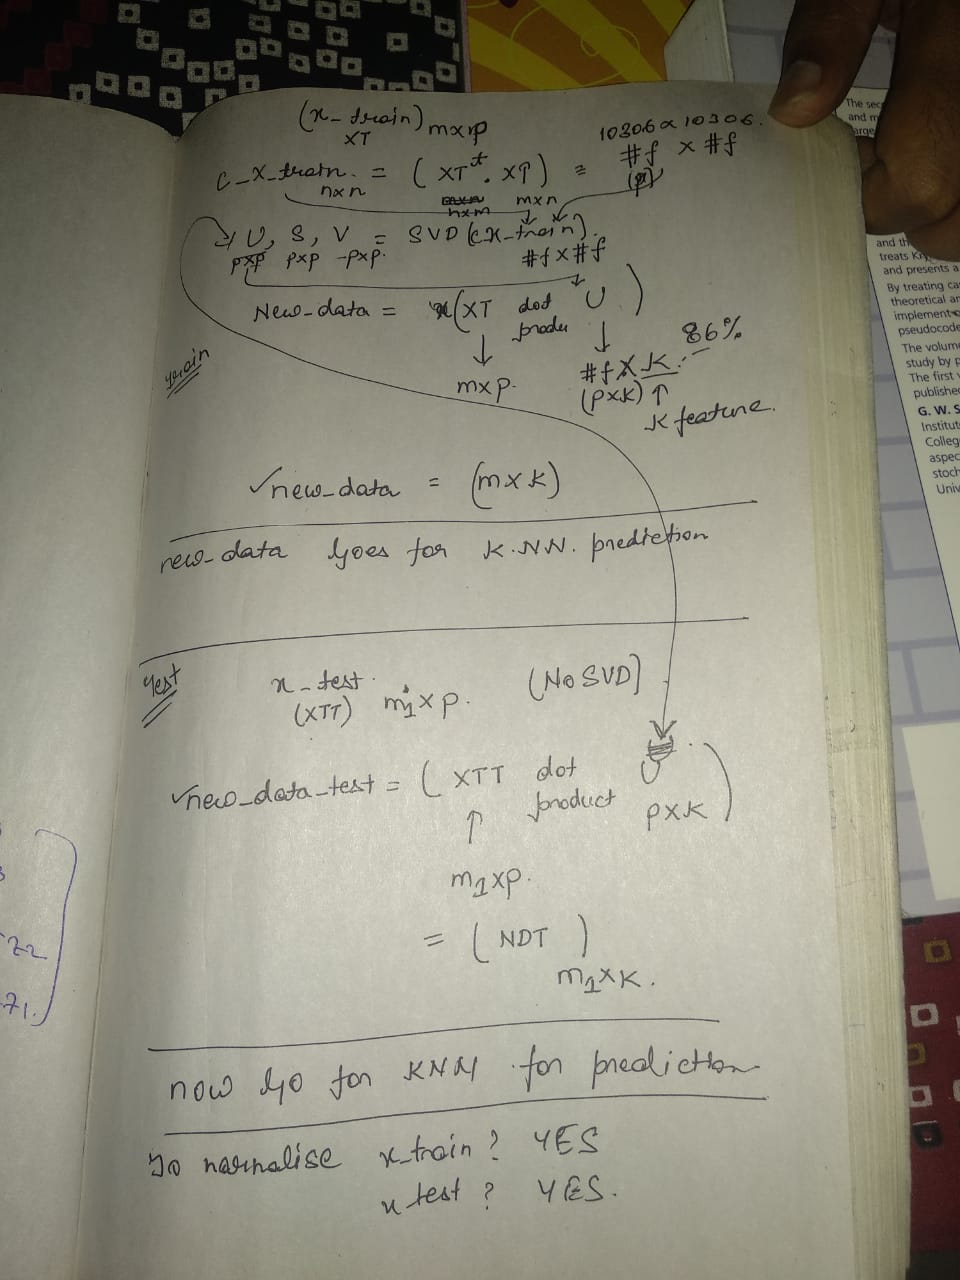 (x-train) mxp
XT
10306 x 10306.
C_X_train. = ( XTᵗ . XT ) = #f x #f
nxn nxm mxn (p)
→ U, S, V = SVD (CX-train).
pxp pxp -pxp. #fx#f
New-data = (XT dot U )
produ
86%
train
mxp. #f X K.
(pxk) ↑
K feature.
✓new-data = (mxk)
new-data goes for K.NN. prediction
Test
x-test. (No SVD]
(XTT) m1xp.
✓new-data-test = ( XTT dot U )
↑ product pxk
m1xp.
= ( NDT )
m1xk.
now go for KNN for prediction
To normalise x-train? YES
x test? YES.
22
71.
The sec
and m
arge
and th
treats K
and presents a
By treating ca
theoretical ar
implement
pseudocode
The volume
study by p
The first v
publishe
G. W. S
Institut
Colleg
aspec
stoch
Univ